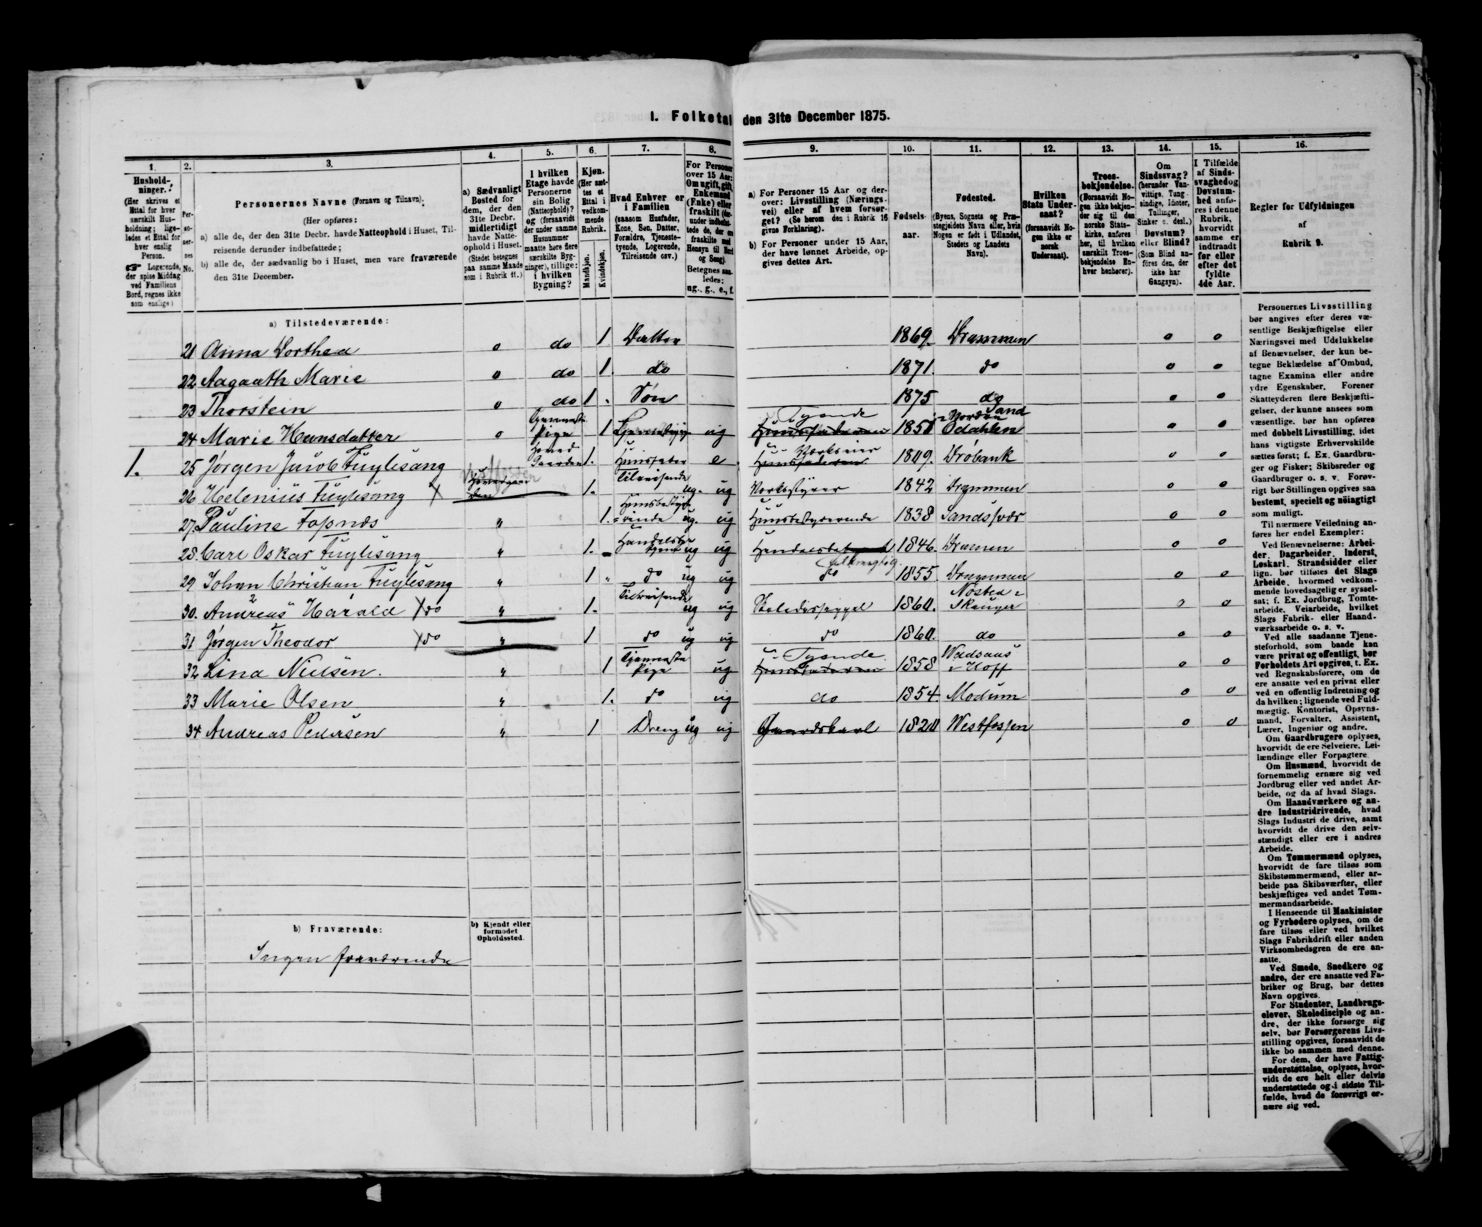 1. Folketal den 31te December 1875.
1. 2. 3. 4. 5. 6. 7. 8. 9. 10. 11. 12. 13. 14. 15. 16.
Hushold-
ninger.
(Her skrives et
Ettal for hver
særskilt Hus-
holdning; lige-
ledes et Ettal for
hver enslig
Person.
☞ Logerende,
der spise Middag
ved Familiens
Bord, regnes ikke
som enslige)
Per-
so-
ner-
nes
No.
Personernes Navne (Fornavn og Tilnavn).
(Her opføres:
a) alle de, der den 31te Decbr. havde Natteophold i Huset, Til-
reisende derunder indbefattede;
b) alle de, der sædvanlig bo i Huset, men vare fraværende
den 31te December.
a) Sædvanligt
Bosted for
dem, der den
31te Decbr.
midlertidigt
havde Natte-
ophold i Huset.
(Stedet betegnes
paa samme Maade
som i Rubrik 11.)
I hvilken
Etage havde
Personerne
sin Bolig
(Natteophold)?
og (forsaavidt
der under samme
Husnummer
maatte høre flere
særskilte Byg-
ninger), tillige:
i hvilken
Bygning?
Kjøn.
(Her sæt-
tes et
Ettal i
vedkom-
mende
Rubrik.
Mandkjøn.
Kvindekjøn.
Hvad Enhver er
i Familien
(saasom Husfader,
Kone, Søn, Datter,
Forældre, Tjeneste-
tyende, Logerende,
Tilreisende osv.)
For Personer
over 15 Aar:
Om ugift, gift,
Enkemand
(Enke) eller
fraskilt
Betegnes saa-
ledes:
ug., g., e., f.
a) For Personer 15 Aar og der-
over: Livsstilling (Nærings-
vei) eller af hvem forsør-
get? (Se herom den i Rubrik 16
givne Forklaring).
b) For Personer under 15 Aar,
der have lønnet Arbeide, op-
gives dettes Art.
Fødsels-
aar.
Fødested.
(Byens, Sognets og Præ-
stegjeldets Navn eller, hvis
Nogen er født i Udlandet,
Stedets og Landets
Navn).
Hvilken
Stats Under-
saat?
(forsaavidt No-
gen ikke er
norsk
Undersaat).
Troes-
bekjendelse.
(Forsaavidt No-
gen ikke bekjen-
der sig til den
norske Stats-
kirke, anføres
her, til hvilken
særskilt Troes-
bekjendelse En-
hver henhører).
Om
Sindssvag?
(herunder Van-
vittige, Tung-
sindige, Idioter,
Tullinger,
Sinker o. desl.)
Døvstum?
eller Blind?
(Som Blind an-
føres den, der
ikke har
Gangsyn).
I Tilfælde
af Sinds-
svaghed og
Døvstum-
hed anfø-
res i denne
Rubrik,
hvorvidt
samme er
indtraadt
før eller
efter det
fyldte
4de Aar.
Regler for Udfyldningen
af
Rubrik 9.
a) Tilstedeværende:
21 Anna Dorthea o do 1 Datter 1869 Drammen o o
22 Aagaath Marie o do 1 do 1871 do o o
23 Thorstein o do 1 Søn 1875 do o o
24 Marie Hansdatter o 1 ug Tyende 1851 Nordre Odahlen Sand o o
1. 25 Jørgen Jacob Fuglesang 1 Husfader e. 1809 Drøbank o o
26 Helenius Fuglesang X 1 Tilreisende ug ug Værksstyrer 1842 Drammen o o
27 Pauline Fossnæs " 1 Husbestyrerinde ug ug Husbestyrerinde 1838 Sandsvær o o
28 Carl Oskar Fuglesang " 1 ug ug 1846 Dramen o o
29 Johan Christian Fuglesang " 1 do ug ug do 1855 Drammen o o
30 Andreas Harald X do " 1 Tilreisende ug ug 1860 Skouger o o
31 Jørgen Theodor X do " 1 do ug ug do 1860 do o o
32 Lina Nielsen. " 1 Tjenestepige ug Tyende 1858 Hoff o o
33 Marie Olsen " 1 do ug do 1854 Modum o o
34 Andreas Pedersen " 1 Dreng ug ug Gaardskarl 1820 Westfossen o o
b) Fraværende:
b) Kjendt eller
formodet
Opholdssted.
Ingen fraværende
Personernes Livsstilling
bør angives efter deres væ-
sentlige Beskjæftigelse eller
Næringsvei med Udelukkelse
af Benævnelser, der kun be-
tegne Beklædelse af Ombud,
tagne Examina eller andre
ydre Egenskaber. Forener
Skatteyderen flere Beskjæfti-
gelser, der kunne ansees som
væsentlige, bør han opføres
med dobbelt Livsstilling, idet
hans vigtigste Erhvervskilde
sættes først; f. Ex. Gaardbru-
ger og Fisker; Skibsreder og
Gaardbruger o. s. v. Forøv-
rigt bør Stillingen opgives saa
bestemt, specielt og nøiagtigt
som muligt.
Til nærmere Veiledning an-
føres her endel Exempler:
Ved Benævnelserne: Arbei-
der, Dagarbeider, Inderst,
Løskarl, Strandsidder eller
lign. bør tilføies det Slags
Arbeide, hvormed vedkom-
mende hovedsagelig er syssel-
sat; f. Ex. Jordbrug, Tomte-
arbeide, Veiarbeide, hvilket
Slags Fabrik- eller Haand-
værksarbeide o. s. v.
Ved alle saadanne Tjene-
steforhold, som baade kan
være privat og offentligt, bør
Forholdets Art opgives, t. Ex.
ved Regnskabsførere, om de
ere ansatte ved en privat eller
ved en offentlig Indretning og
da hvilken; lignende ved Fuld-
mægtig, Kontorist, Opsyns-
mand, Forvalter, Assistent,
Lærer, Ingeniør og andre.
Om Gaardbrugere oplyses,
hvorvidt de ere Selveiere, Lei-
lændinge eller Forpagtere.
Om Husmænd, hvorvidt de
fornemmelig ernære sig ved
Jordbrug eller ved andet Ar-
beide, og da af hvad Slags.
Om Haandværkere og an-
dre Industridrivende, hvad
Slags Industri de drive, samt
hvorvidt de drive den selv-
stændigt eller ere i andres
Arbeide.
Om Tømmermænd oplyses,
hvorvidt de fare tilsøs som
Skibstømmermænd, eller ar-
beide paa Skibsværfter, eller
beskjæftiges ved andet Tøm-
mermandsarbeide.
I Henseende til Maskinister
og Fyrbødere oplyses, om de
fare tilsøs eller ved hvilket
Slags Fabrikdrift eller anden
Virksomhedsgren de ere an-
satte.
Ved Smede, Snedkere og
andre, der ere ansatte ved Fa-
briker og Brug, bør dettes
Navn opgives.
For Studenter, Landbrugs-
elever, Skoledisciple og an-
dre, der ikke forsørge sig
selv, bør Forsørgerens Livs-
stilling opgives, forsaavidt de
ikke bo sammen med denne.
For dem, der have Fattig-
understøttelse, oplyses, hvor-
vidt de ere helt eller delvis
understøttede og i sidste Til-
fælde, hvad de forøvrigt er-
nære sig ved.